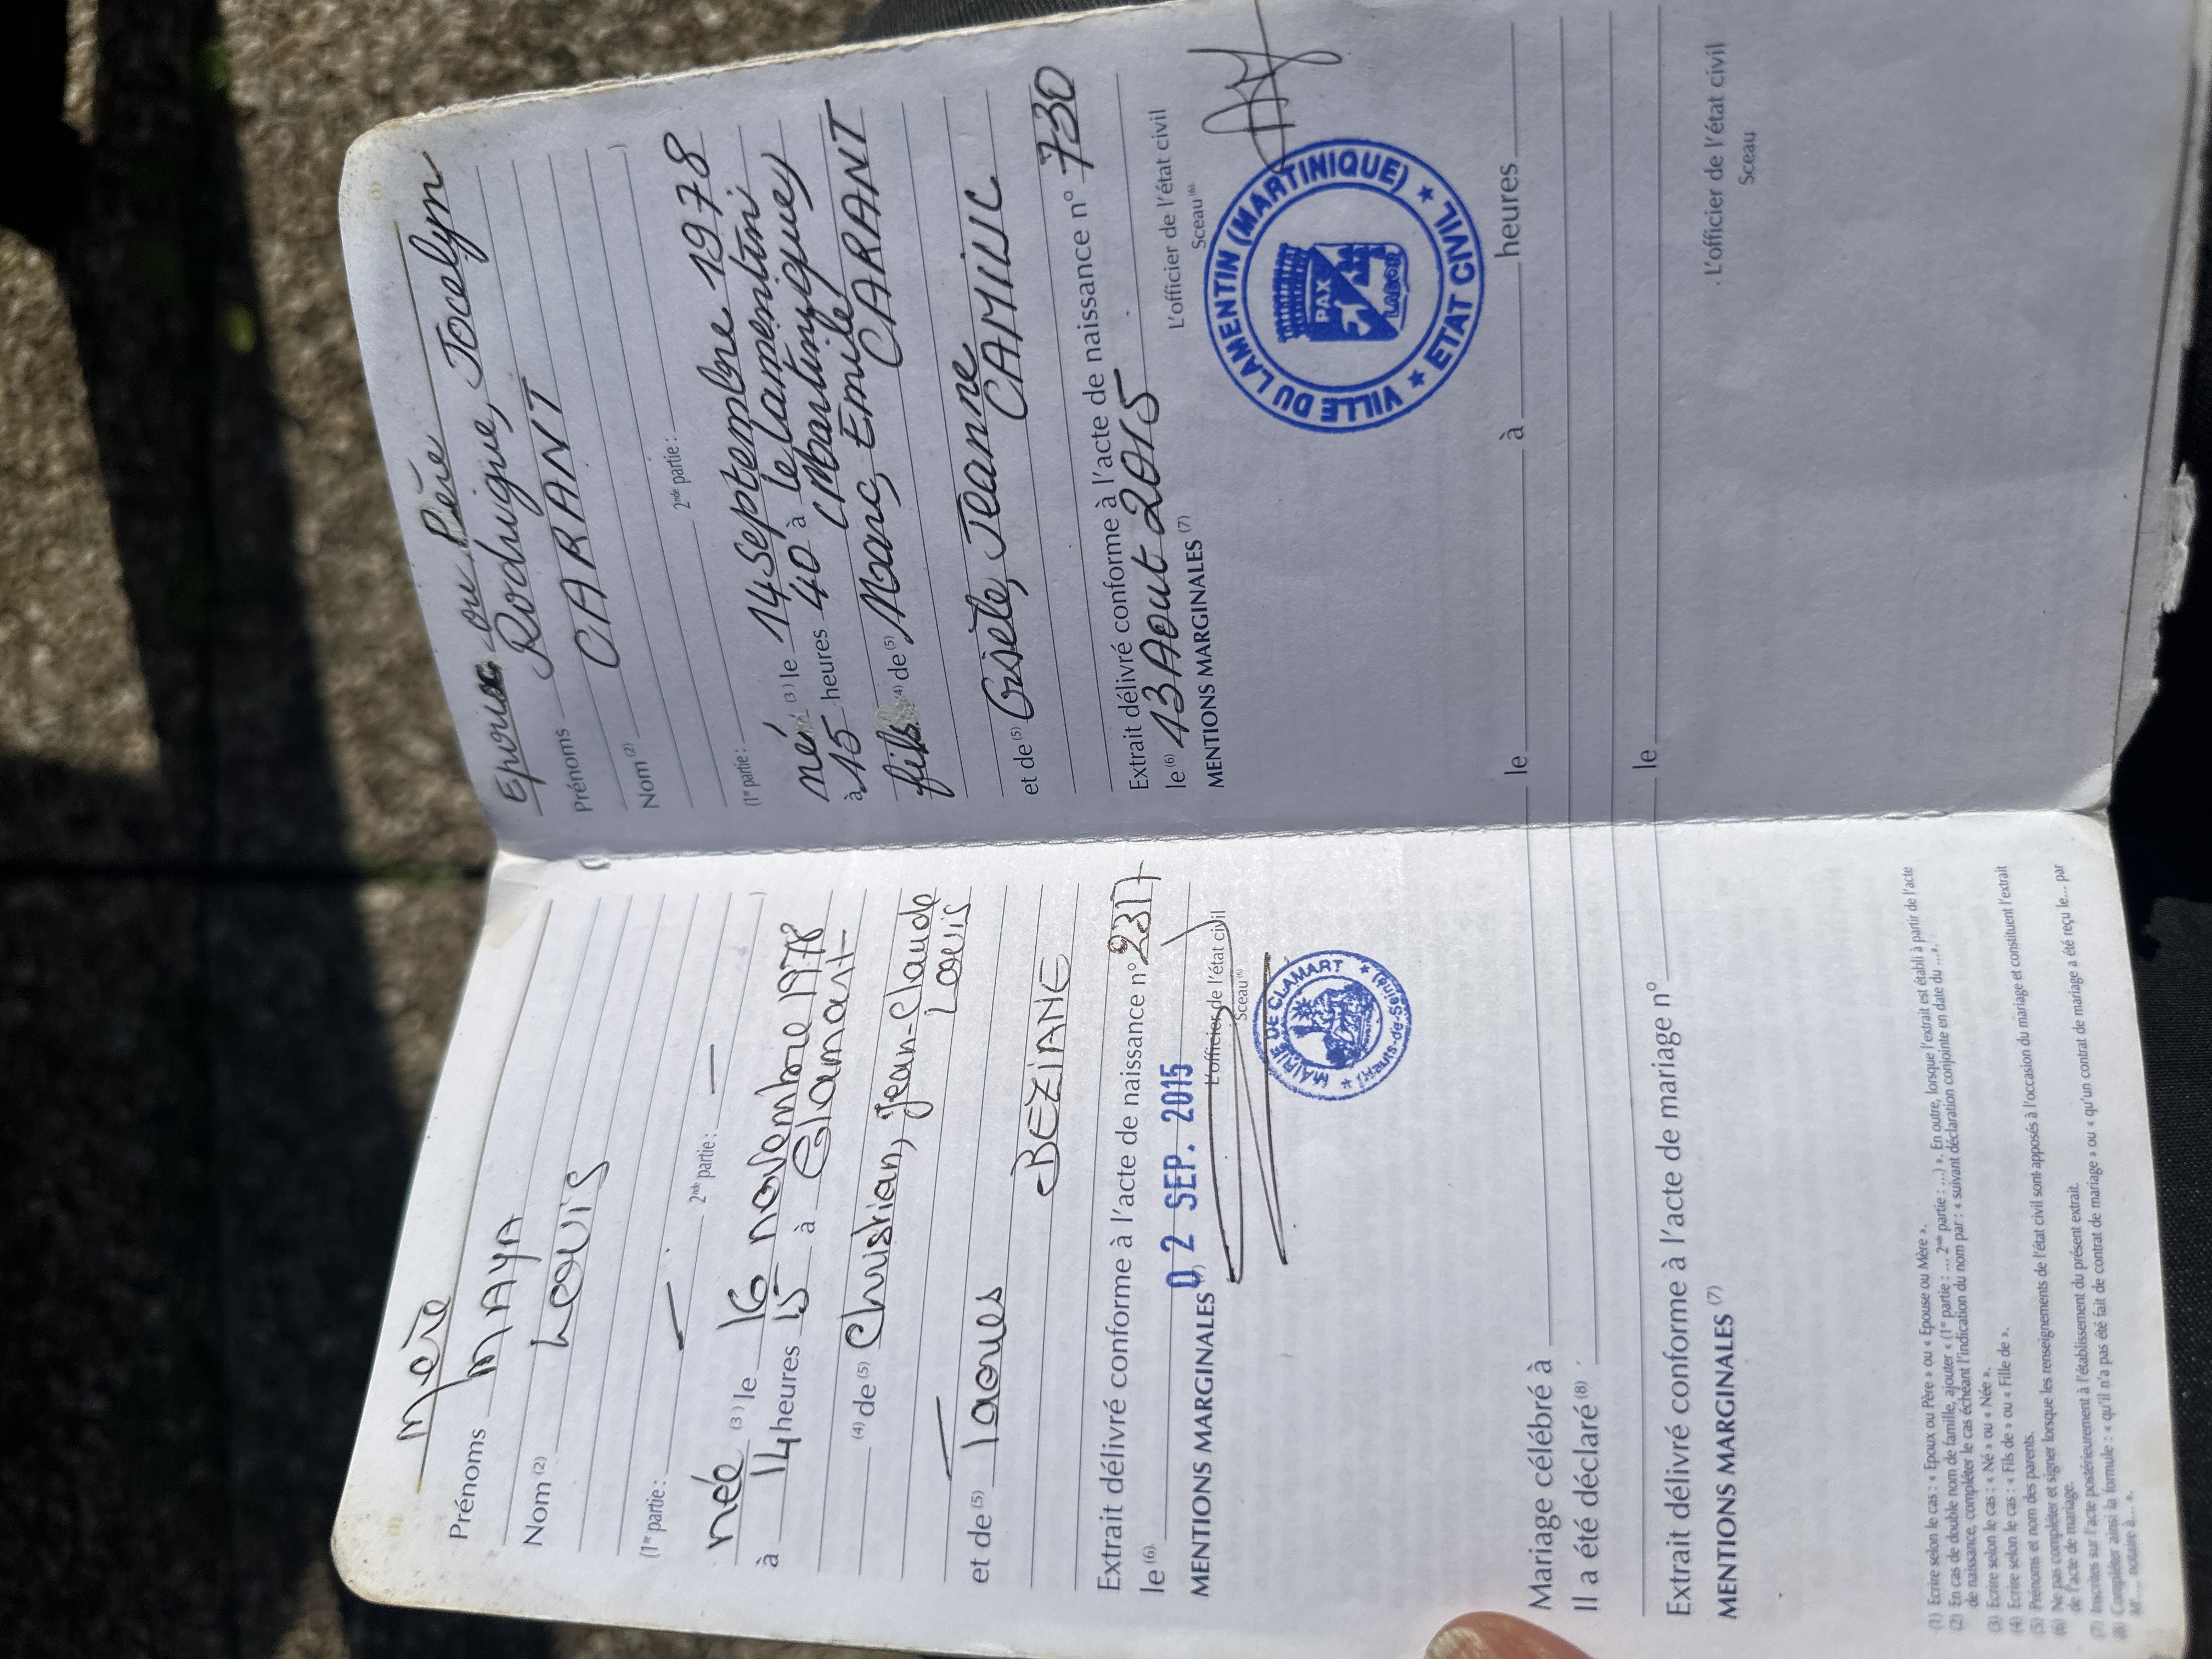 Mère
Prénoms MAYA
Nom (2) Louis
(1re partie : — 2nde partie : — )
née (3) le 16 novembre 1978
à 14 heures 15 à Clamart
(4) de (5) Christian, Jean-Claude
Louis
et de (5)
BEZIANE
Extrait délivré conforme à l'acte de naissance n° 2317
le (6) 02 SEP. 2015
L'officier de l'état civil
Sceau (6)
MENTIONS MARGINALES
MAIRIE DE CLAMART
(Hauts-de-Seine)
Epoux ou Père
Prénoms Rodrigue, Jocelym
Nom (2) CARANT
(1re partie : 2nde partie : )
né (3) le 14 Septembre 1978
à 15 heures 40 à le lamentin
(Martinique)
fils (4) de (5) Marc, Emile
CARANT
et de (5) Gisèle, Jeanne
CAMILIC
Extrait délivré conforme à l'acte de naissance n° 730
le (6) 13 Aout 2015
L'officier de l'état civil
Sceau (6)
MENTIONS MARGINALES (7)
VILLE DU LAMENTIN (MARTINIQUE)
ETAT CIVIL
PAX
LABOR
Mariage célébré à le à heures
Il a été déclaré (8)
Extrait délivré conforme à l'acte de mariage n° le
MENTIONS MARGINALES (7)
L'officier de l'état civil
Sceau
(1) Ecrire selon le cas : « Epoux ou Père » ou « Epouse ou Mère ».
(2) En cas de double nom de famille, ajouter « (1re partie : ... 2nde partie : ...) ». En outre, lorsque l'extrait est établi à partir de l'acte
de naissance, compléter le cas échéant l'indication du nom par : « suivant déclaration conjointe en date du ... ».
(3) Ecrire selon le cas : « Né » ou « Née ».
(4) Ecrire selon le cas : « Fils de » ou « Fille de ».
(5) Prénoms et nom des parents.
(6) Ne pas compléter et signer lorsque les renseignements de l'état civil sont apposés à l'occasion du mariage et constituent l'extrait
de l'acte de mariage.
(7) Inscrites sur l'acte postérieurement à l'établissement du présent extrait.
(8) Compléter ainsi la formule : « qu'il n'a pas été fait de contrat de mariage » ou « qu'un contrat de mariage a été reçu le... par
M... notaire à... ».